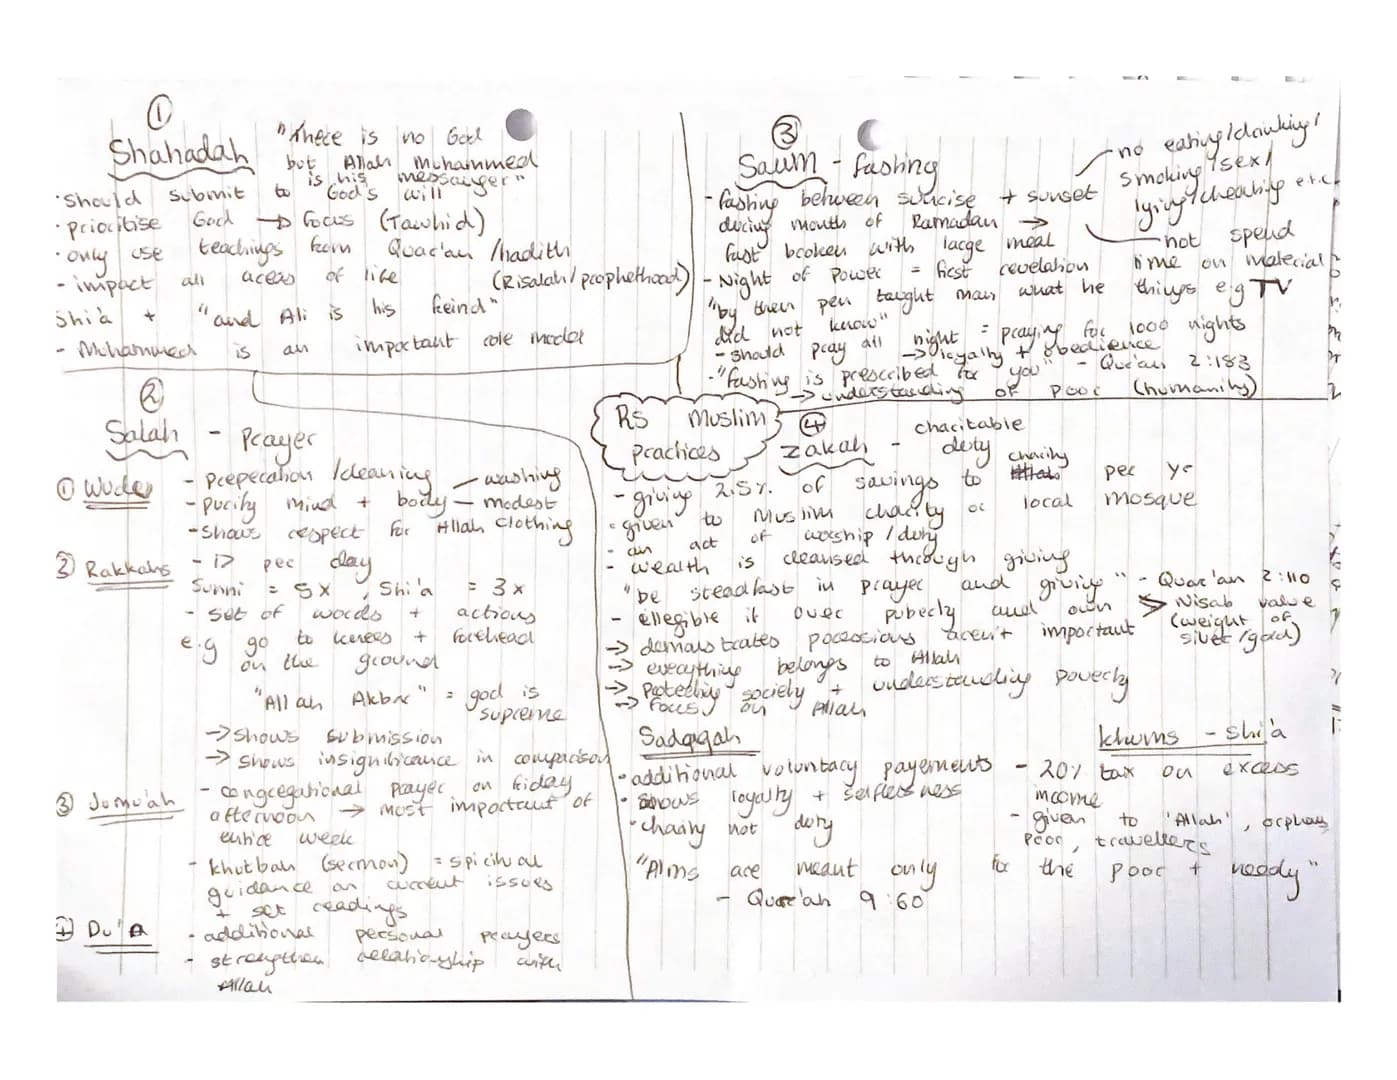 ①
Shahadah
"There is no God
but Allah Muhammed
is his messanger"
· Should submit to God's will
· prioritise God → focus (Tawhid)
· only use teachings from Qurar'an /hadith
- impact all areas of life (Risalah/prophethood)
Shi'a + "and Ali is his freind"
- Muhammed is an important role model
②
Salah - Prayer
① Wudu - preperation /cleaning - washing
- purify mind + body - modest clothing
- shows respect for Allah
② Rakkahs - 17 per day
Sunni = 5x, Shi'a = 3x
- set of words + actions
e.g go to knees + forehead
on the ground
"Allah Akbar" = god is
supreme
→ shows submission
→ shows insignificance in comparison
③ Jumu'ah - congregational prayer on friday
afternoon → most important of
entire week
- khutbah (sermon) = spiritual
guidance on current issues
+ set readings
④ Du'A - additional personal prayers
- strengthen relationship with
Allah
③
Sawm - fasting
- fasting between sunrise + sunset
during month of Ramadan →
fast broken with large meal
no eating/drinking/
smoking/sex/
lying/cheating etc.
not spend
time on material
things e.g TV
- Night of Power = first revelation
"by then pen taught man what he
did not know"
- should pray all night = praying for 1000 nights
→ loyalty + obedience
- "fasting is prescribed for you" - Qur'an 2:183
→ understanding of poor (humanity)
RS Muslim
practices
④
Zakah - charitable
duty
- giving 2.5% of savings to charity per yr
· given to Muslim charity or local mosque
- an act of worship /duty
- wealth is cleansed through giving
"be steadfast in prayer and giving" - Qurar'an 2:110
- ellegible if over puberty and own > Nisab value
(weight of
silver/gold)
→ demonstrates possessions aren't important
→ everything belongs to Allah
→ protecting society + understanding poverty
→ focus on Allah
Sadaqah
· additional voluntary payements
· shows loyalty + selflessness
· charity not duty
"Alms are meant only for the poor + needy"
- Qurar'an 9:60
khums - Shi'a
- 20% tax on excess
income
- given to 'Allah', orphans
poor, travellers